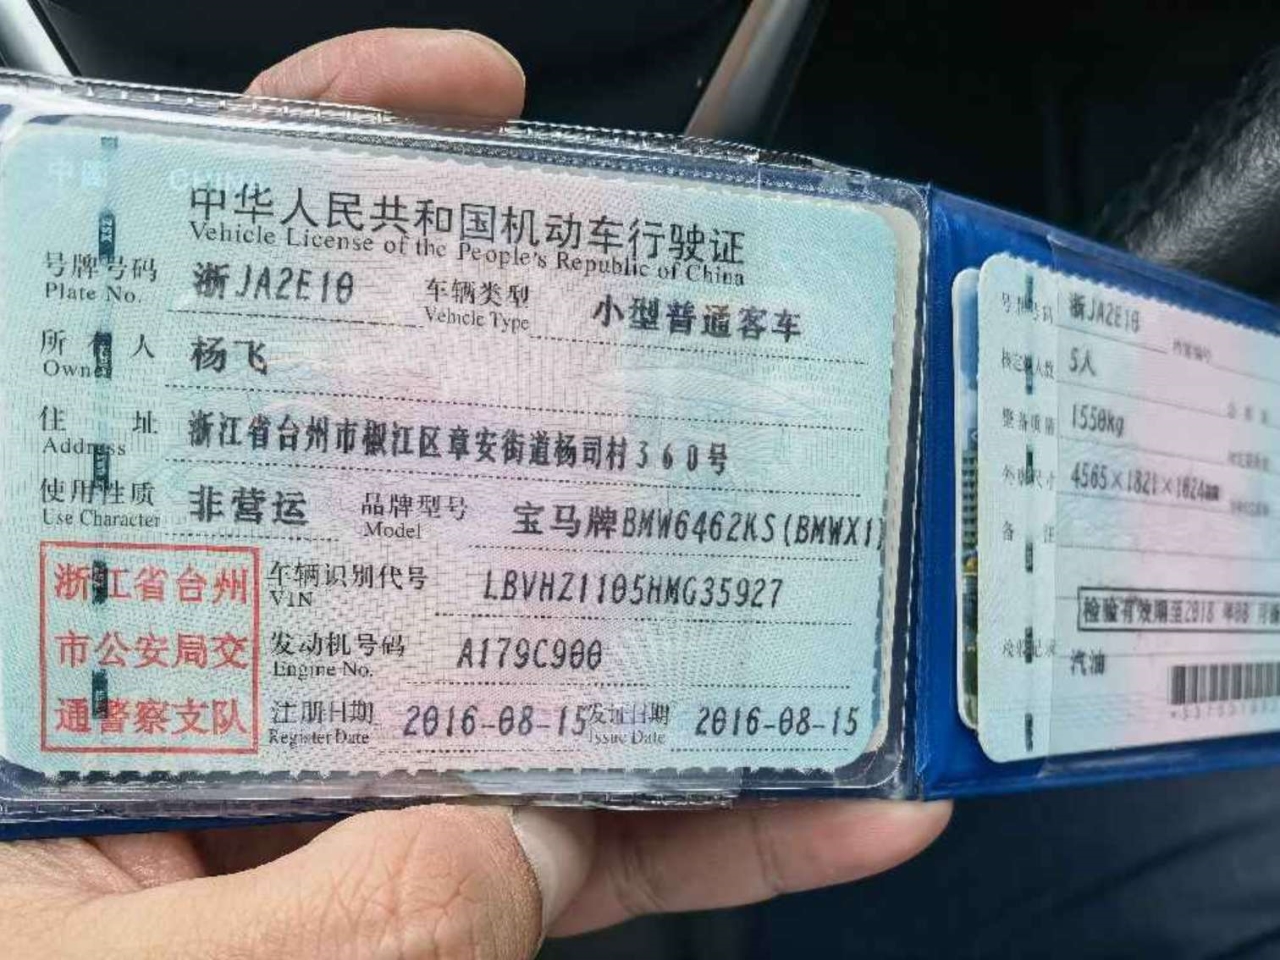 中华人民共和国机动车行驶证
Vehicle License of the People's Republic of China
号牌号码 浙JA2E10 车辆类型 小型普通客车
Plate No. Vehicle Type
所有人 杨飞
Owner
住址 浙江省台州市椒江区章安街道杨司村360号
Address
使用性质 非营运 品牌型号 宝马牌BMW6462KS(BMWX1)
Use Character Model
浙江省台州
市公安局交
通警察支队
车辆识别代号 LBVHZ1105HMG35927
VIN
发动机号码 A179C900
Engine No.
注册日期 2016-08-15 发证日期 2016-08-15
Register Date Issue Date
号牌号码 浙JA2E10 档案编号
核定载人数 5人
整备质量 1550kg
外廓尺寸 4565×1821×1624mm
备注
检验有效期至2018年08月
检验记录
汽油